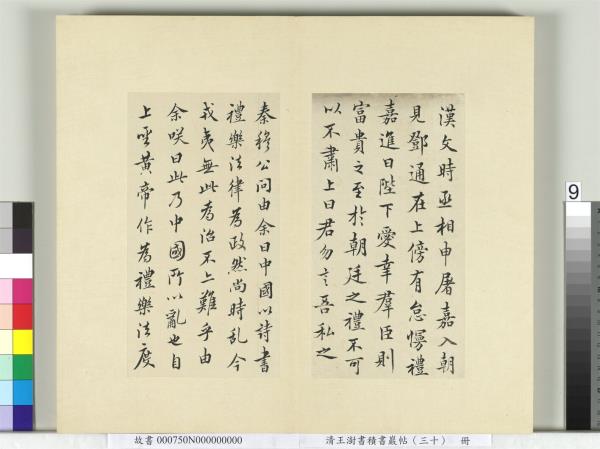 漢文時丞相申屠嘉入朝
見鄧通在上傍有怠慢禮
嘉進曰陛下愛幸羣臣則
富貴之至於朝廷之禮不可
以不肅上曰君勿言吾私之
秦穆公問由余曰中國以詩書
禮樂法律為政然尚時乱今
戎夷無此為治不亦難乎由
余咲曰此乃中國所以亂也自
上聖黃帝作為禮樂法度
9
故書 000750N000000000
清王澍書積書巖帖（三十） 冊